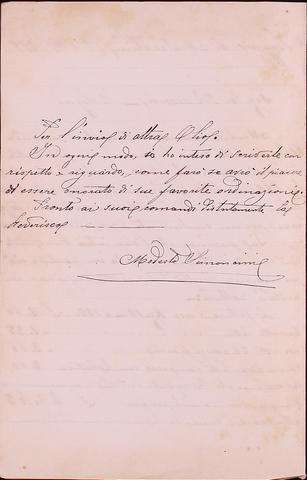 Per l'invio di altra Oliof.
In ogni modo, io ho inteso di servirla con
rispetto e riguardo, come farò se avrò il piacere
di essere onorato di sue favorite ordinazioni.
Pronto ai suoi comandi distintamente La
Riverisco
Modesto